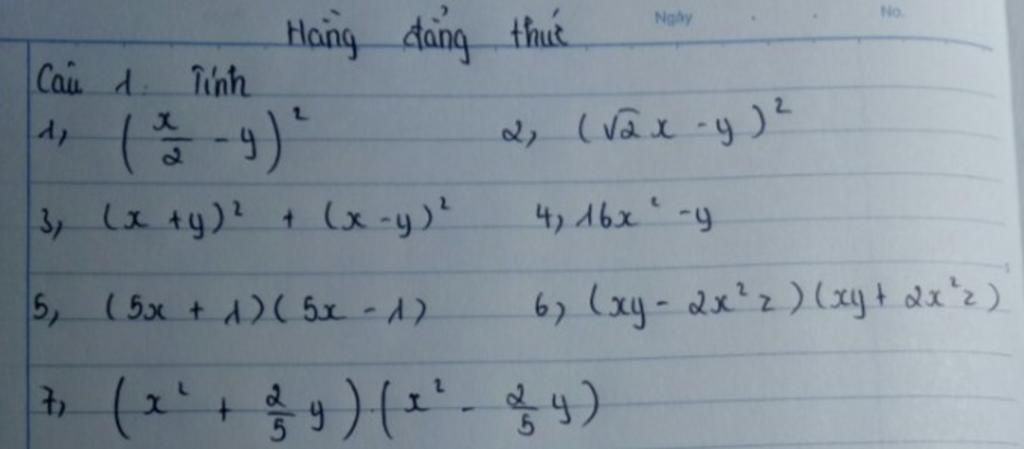 Ngày . . No.
Hằng đẳng thức
Câu 1. Tính
1, (x/2 - y)²  2, (√2 x - y)²
3, (x + y)² + (x - y)²  4, 16x² - y
5, (5x + 1)(5x - 1)  6, (xy - 2x²z)(xy + 2x²z)
7, (x² + 2/5 y).(x² - 2/5 y)